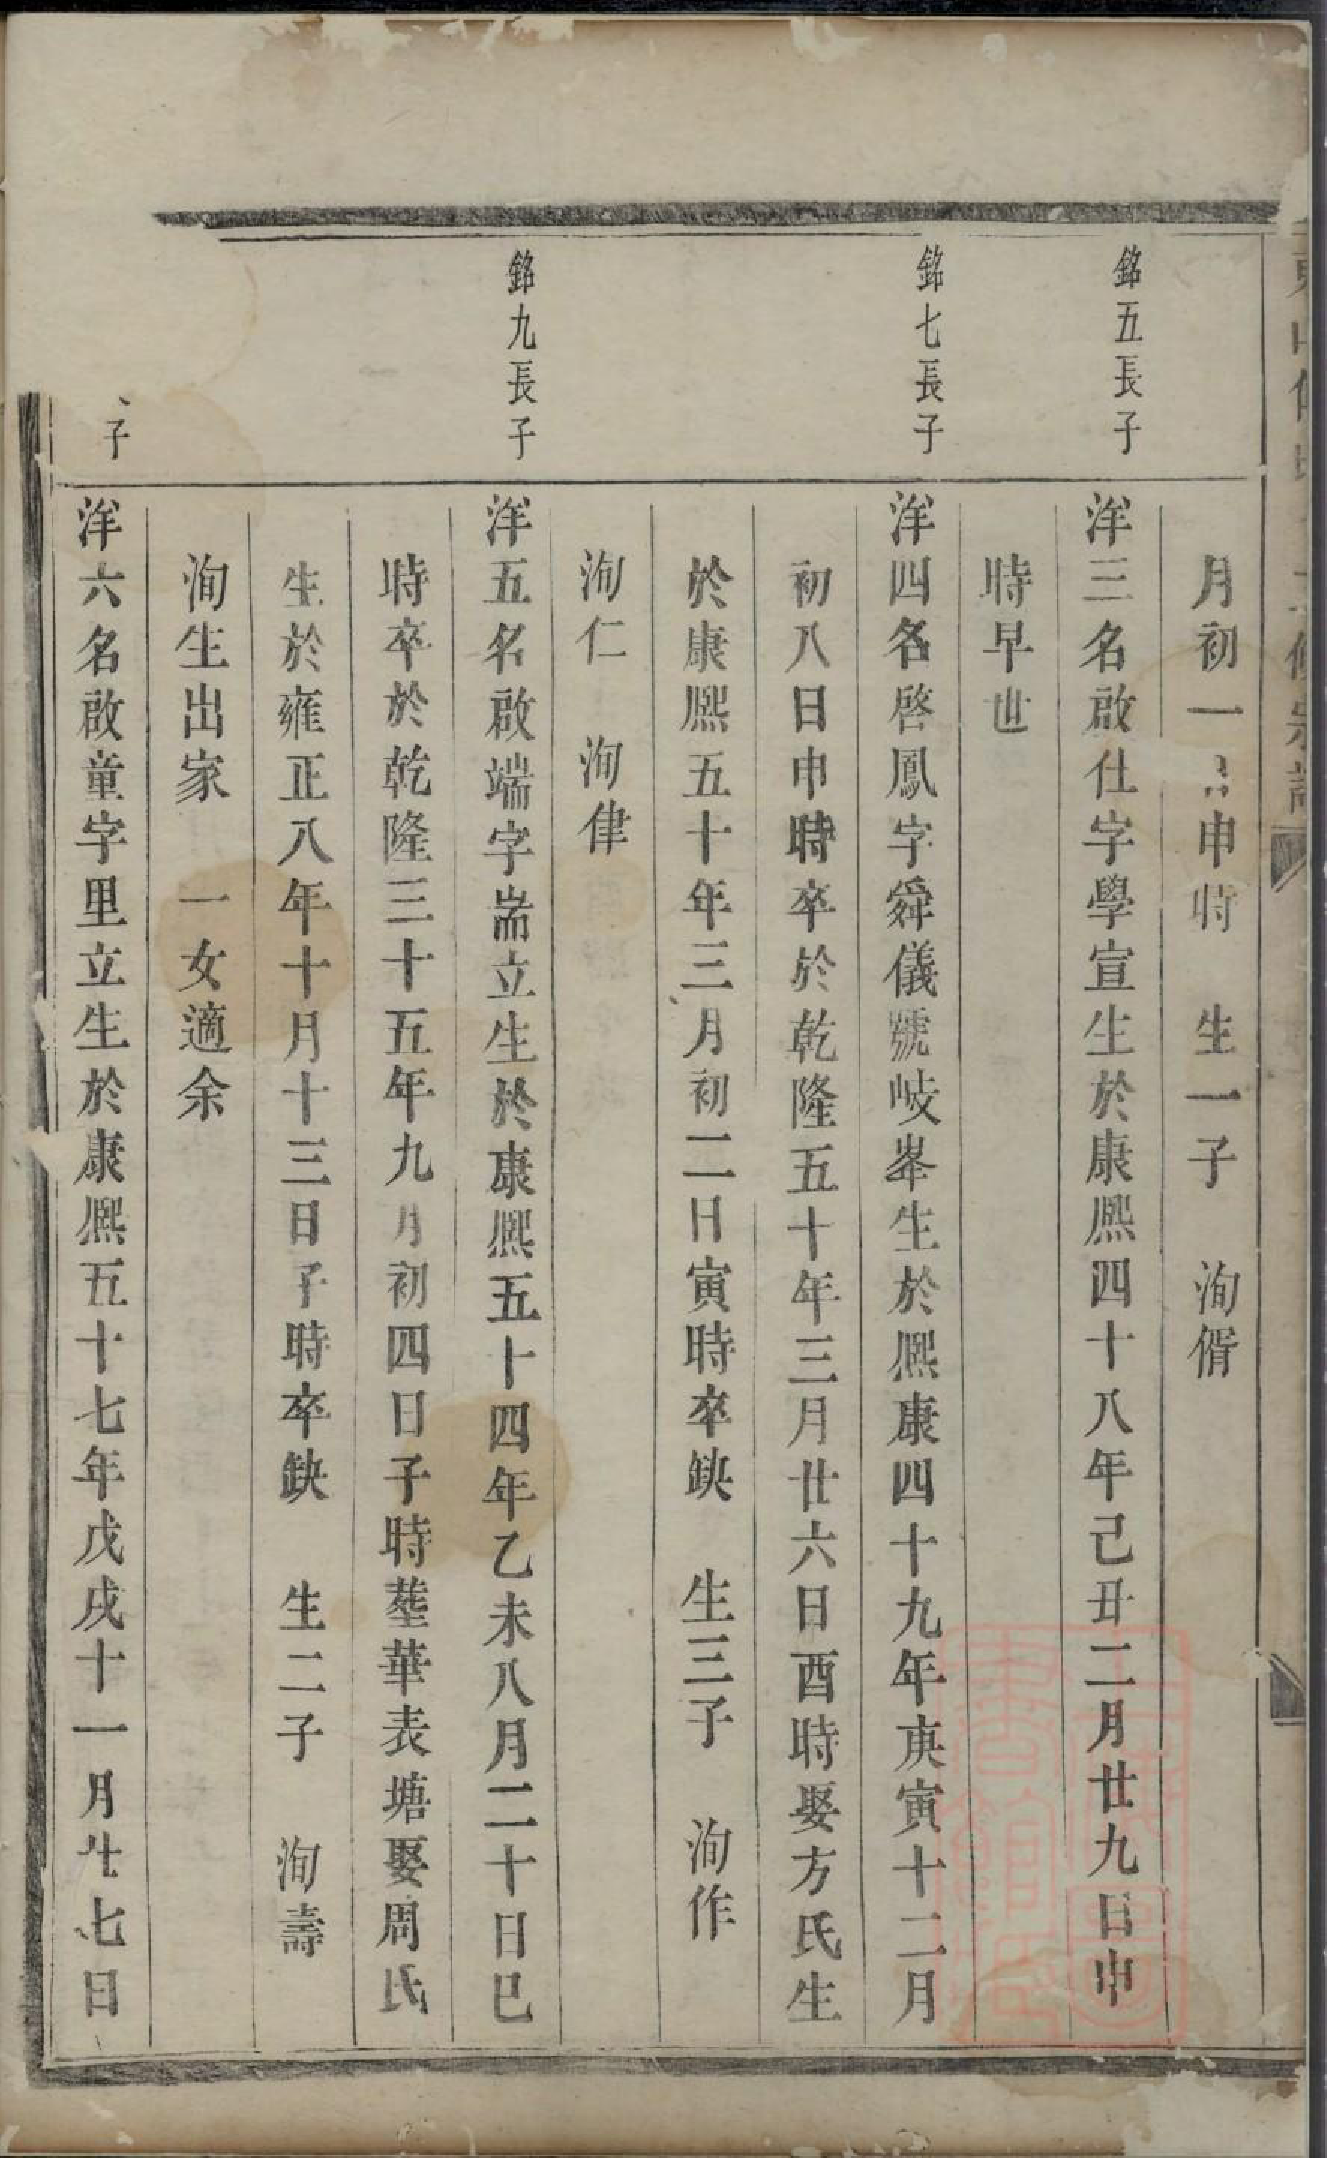 月初一 申時 生一子 洵偦
銘五長子
洋三名啟仕字學宣生於康熙四十八年己丑二月廿九日申
時早世
銘七長子
洋四名啓鳳字舜儀號岐峯生於熙康四十九年庚寅十二月
初八日申時卒於乾隆五十年三月廿六日酉時娶方氏生
於康熙五十年三月初二日寅時卒缺 生三子 洵作
洵仁 洵律
銘九長子
洋五名啟端字耑立生於康熙五十四年乙未八月二十日巳
時卒於乾隆三十五年九月初四日子時塟華表塘娶周氏
生於雍正八年十月十三日子時卒缺 生二子 洵壽
洵生出家 一女適余
子
洋六名啟童字里立生於康熙五十七年戊戌十一月廿七日